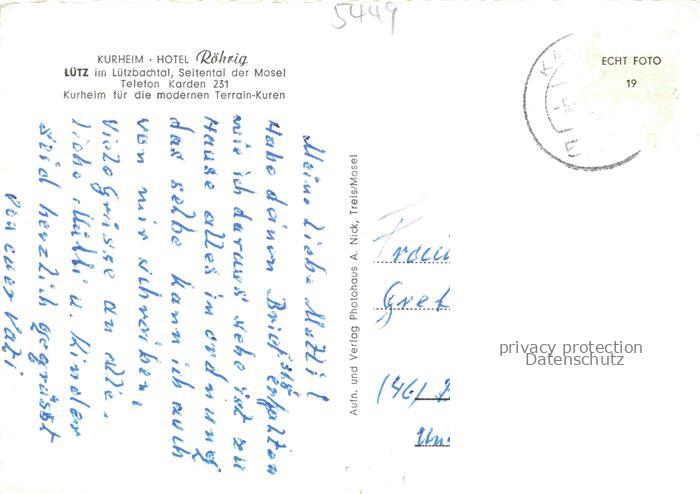 5449
KURHEIM · HOTEL Röhrig
LÜTZ im Lützbachtal, Seitental der Mosel
Telefon Karden 231
Kurheim für die modernen Terrain-Kuren
ECHT FOTO
19
Meine liebe Mutti!
Habe deinen Brief erhalten
wie ich daraus sehe ist zu
Hause alles in ordnung
das selbe kann ich auch
von mir schreiben,
Viele Grüsse an alle.
liebe Mutti u. Kinder
seid herzlich gegrüsst
von euer Vati
Aufn. und Verlag Photohaus A. Nick, Treis/Mosel
Gret
privacy protection
Datenschutz